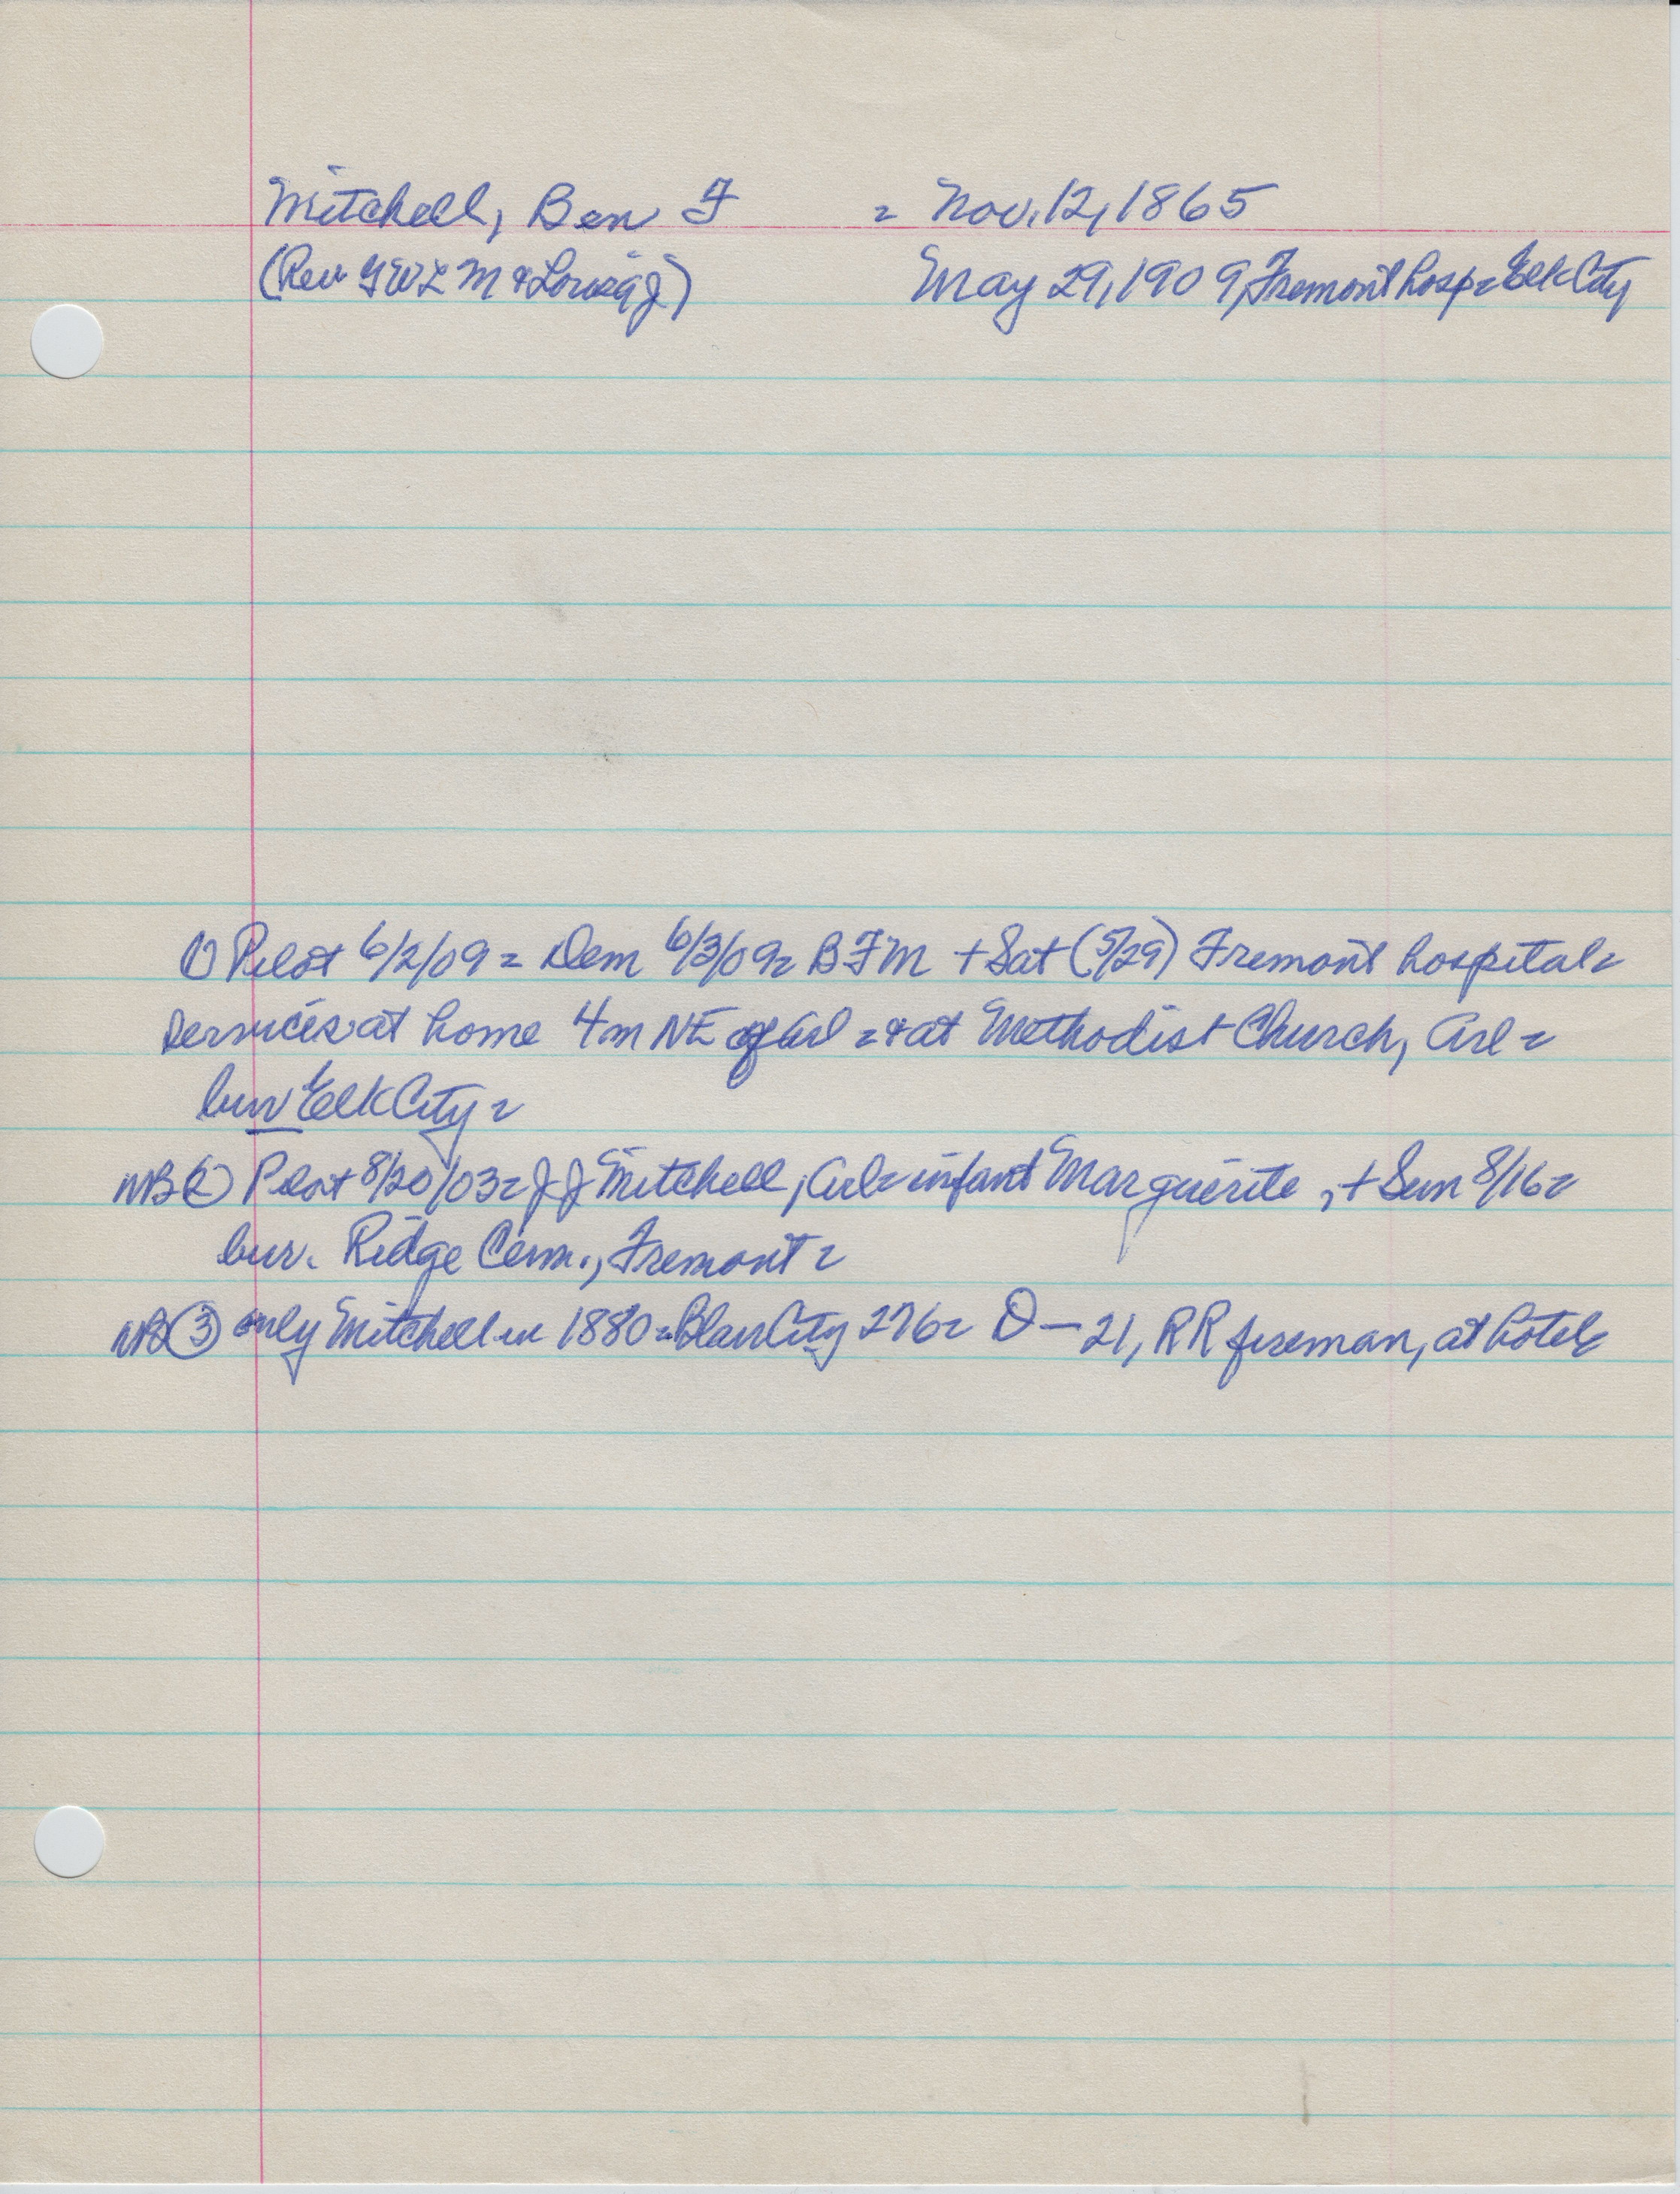 Mitchell, Ben F = Nov. 12, 1865
(Rev GWL M & Louisa J) May 29, 1909, Fremont hosp = Elk City
① Pilot 6/2/09 = Dem 6/3/09 = BFM + Sat (5/29) Fremont hospital =
services at home 4m NE of Arl = & at Methodist Church, Arl =
bur Elk City =
NB ② Pilot 8/20/03 = J J Mitchell, Arl = infant Marguerite, + Sun 8/16 =
bur. Ridge Cem., Fremont =
NB ③ only Mitchell in 1880 = Blair City 276 = D — 21, RR fireman, at hotel =